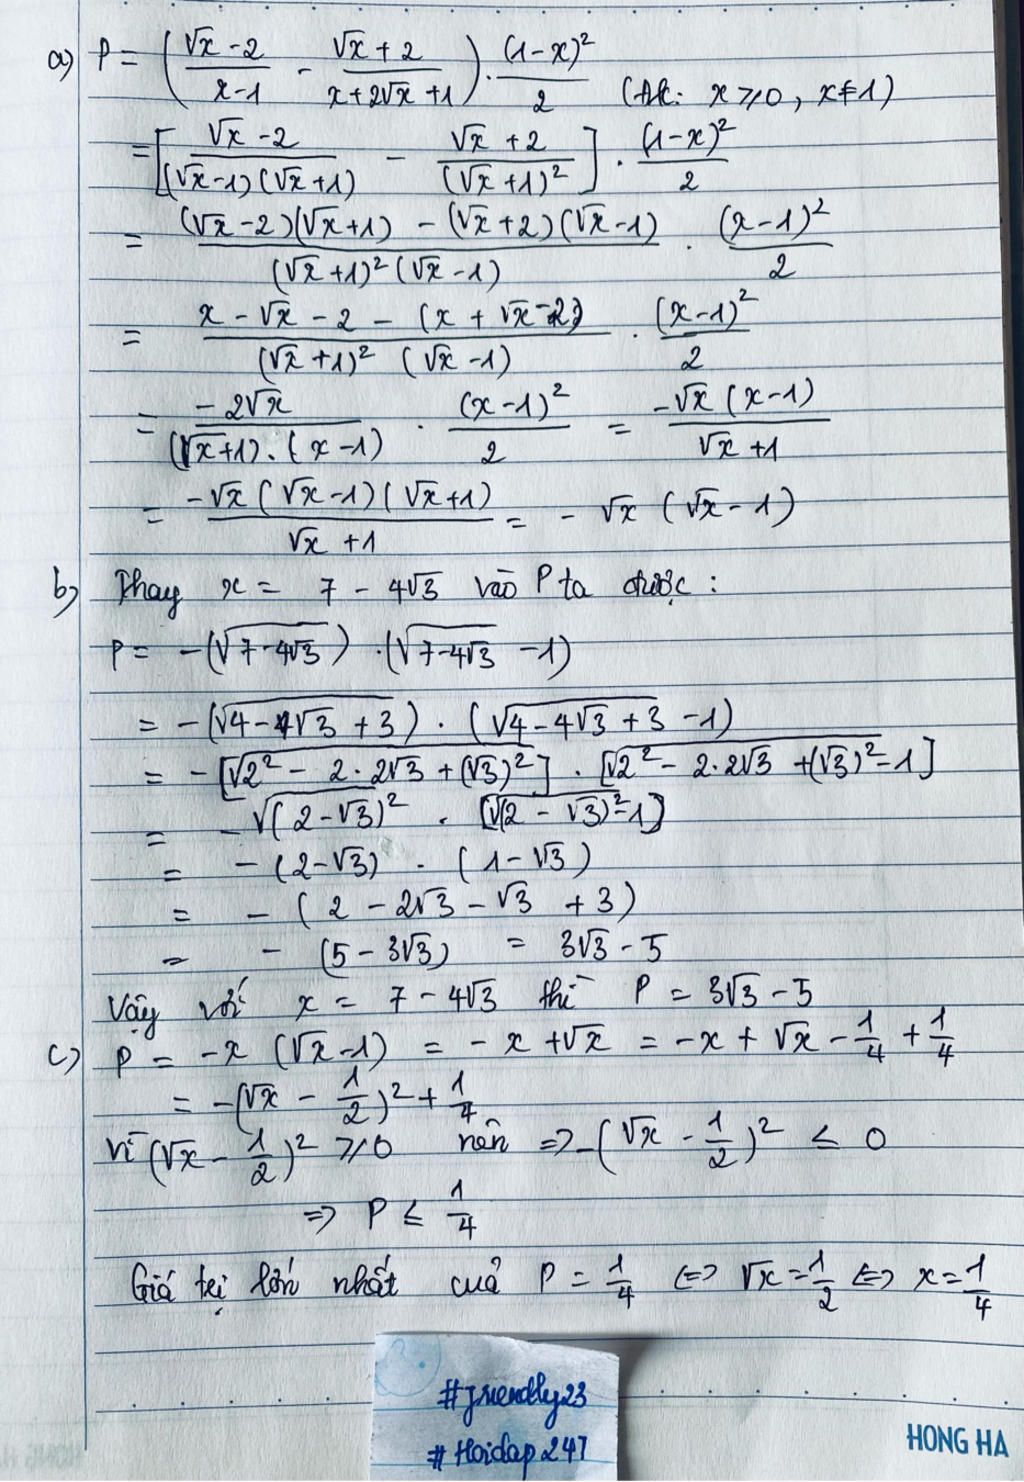 a) P = ( (√x - 2)/(x-1) - (√x + 2)/(x+2√x +1) ) . (1-x)²/2 (đk: x ⩾ 0, x ≠ 1)
= [ (√x - 2)/((√x-1)(√x+1)) - (√x + 2)/(√x+1)² ] . (1-x)²/2
= ((√x-2)(√x+1) - (√x+2)(√x-1))/((√x+1)²(√x-1)) . (x-1)²/2
= (x - √x - 2 - (x + √x - 2))/((√x+1)² (√x-1)) . (x-1)²/2
= (-2√x)/((√x+1).(x-1)) . (x-1)²/2 = (-√x (x-1))/(√x+1)
= (-√x (√x-1)(√x+1))/(√x+1) = - √x (√x-1)
b) Thay x = 7 - 4√3 vào P ta được :
P = -(√(7-4√3)) . (√(7-4√3) -1)
= -(√(4-4√3 + 3)) . (√(4-4√3+3) -1)
= -[√(2² - 2.2√3 + (√3)²)] . [√(2² - 2.2√3 + (√3)²) -1]
= -√(2-√3)² . [√(2-√3)² -1]
= - (2-√3) . (1-√3)
= - (2 - 2√3 - √3 + 3)
= - (5 - 3√3) = 3√3 - 5
Vậy với x = 7 - 4√3 thì P = 3√3 - 5
c) P = -x (√x-1) = - x + √x = -x + √x - 1/4 + 1/4
= -(√x - 1/2)² + 1/4
vì (√x - 1/2)² ⩾ 0 nên => -(√x - 1/2)² ≤ 0
=> P ≤ 1/4
Giá trị lớn nhất cuả P = 1/4 <=> √x = 1/2 <=> x = 1/4
#friendly23
#Hoidap247
HONG HA